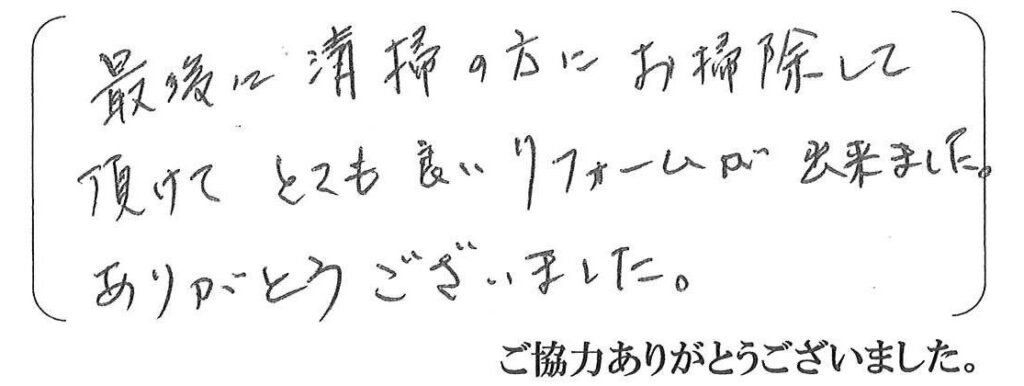 最後に清掃の方にお掃除して
頂けてとても良いリフォームが出来ました。
ありがとうございました。
ご協力ありがとうございました。